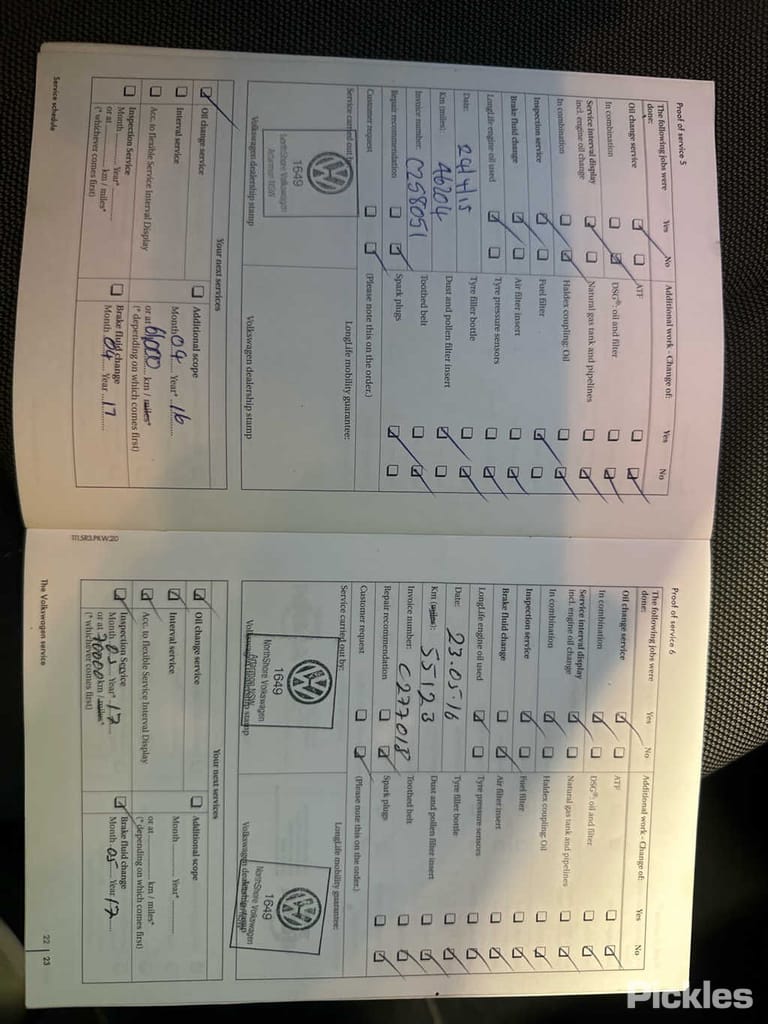 Proof of service 5
The following jobs were done: Yes No
Additional work - Change of: Yes No
Oil change service
ATF
In combination
DSG®: oil and filter
Service interval display incl. engine oil change
Natural gas tank and pipelines
In combination
Haldex coupling: Oil
Inspection service
Fuel filter
Brake fluid change
Air filter insert
LongLife engine oil used
Tyre pressure sensors
Date: 24/4/15
Tyre filler bottle
Km (miles): 46204
Dust and pollen filter insert
Invoice number: C258051
Toothed belt
Repair recommendation
Spark plugs
Customer request
(Please note this on the order.)
Service carried out by:
LongLife mobility guarantee:
1649
NorthShore Volkswagen
Artarmon NSW
Volkswagen dealership stamp
Volkswagen dealership stamp
Your next services
Oil change service
Additional scope
Interval service
Month 04 Year* 16
Acc. to flexible Service Interval Display
or at 61000 km / miles*
(* depending on which comes first)
Inspection Service
Month Year*
or at km / miles*
(* whichever comes first)
Brake fluid change
Month 04 Year 17
Service schedule
111.5R3.PKW.20
Proof of service 6
The following jobs were done: Yes No
Additional work - Change of: Yes No
Oil change service
ATF
In combination
DSG®: oil and filter
Service interval display incl. engine oil change
Natural gas tank and pipelines
In combination
Haldex coupling: Oil
Inspection service
Fuel filter
Brake fluid change
Air filter insert
LongLife engine oil used
Tyre pressure sensors
Date: 23.05.16
Tyre filler bottle
Km (miles): 55123
Dust and pollen filter insert
Invoice number: C277018
Toothed belt
Repair recommendation
Spark plugs
Customer request
(Please note this on the order.)
Service carried out by:
LongLife mobility guarantee:
1649
NorthShore Volkswagen
Artarmon NSW
1649
NorthShore Volkswagen
Volkswagen dealership stamp
Volkswagen dealership stamp
Your next services
Oil change service
Additional scope
Interval service
Month Year*
Acc. to flexible Service Interval Display
or at km / miles*
(* depending on which comes first)
Inspection Service
Month 05 Year* 17
or at 70000 km / miles*
(* whichever comes first)
Brake fluid change
Month 05 Year 17
The Volkswagen service
22 | 23
Pickles